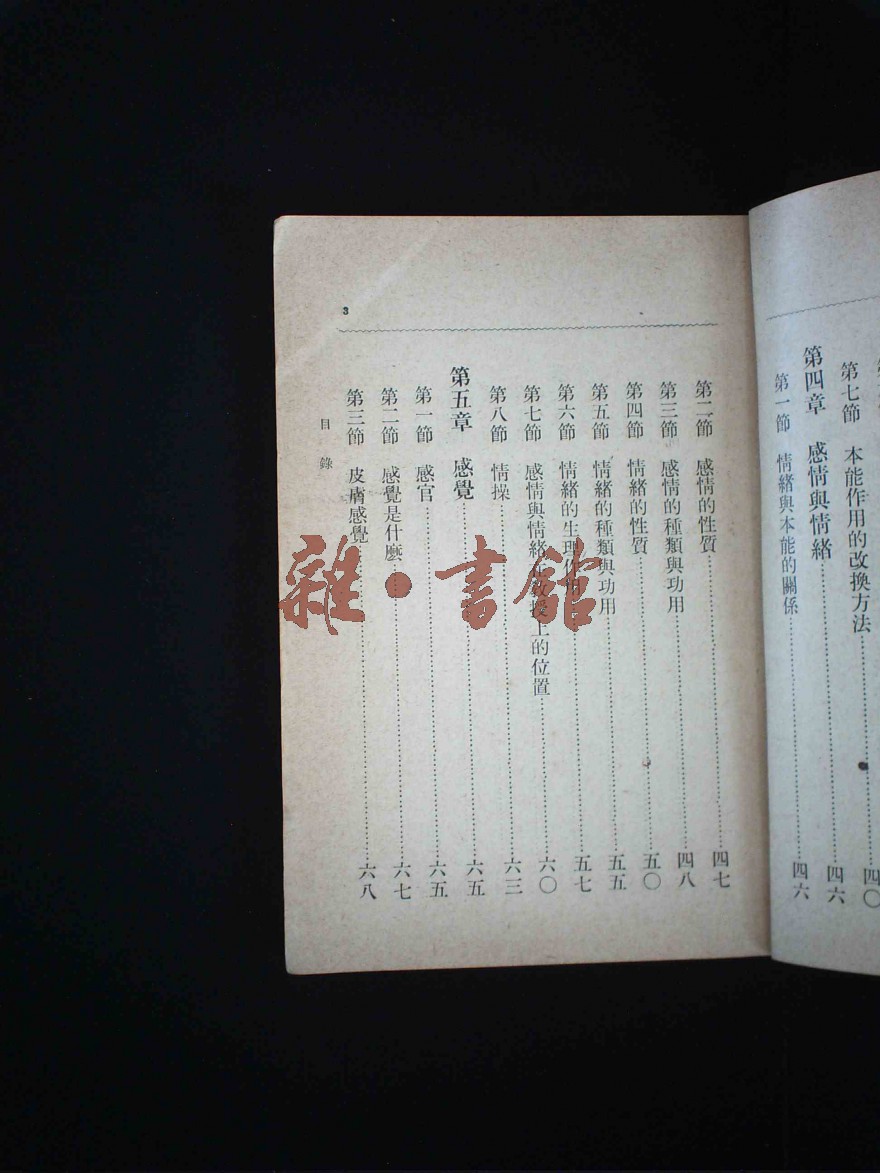 第七節　本能作用的改換方法……四〇
第四章　感情與情緒……四六
第一節　情緒與本能的關係……四六
3
第二節　感情的性質……四七
第三節　感情的種類與功用……四八
第四節　情緒的性質……五〇
第五節　情緒的種類與功用……五五
第六節　情緒的生理作用……五七
第七節　感情與情緒在教授上的位置……六〇
第八節　情操……六三
第五章　感覺……六五
第一節　感官……六五
第二節　感覺是什麽……六七
第三節　皮膚感覺……六八
目錄
雜·書館